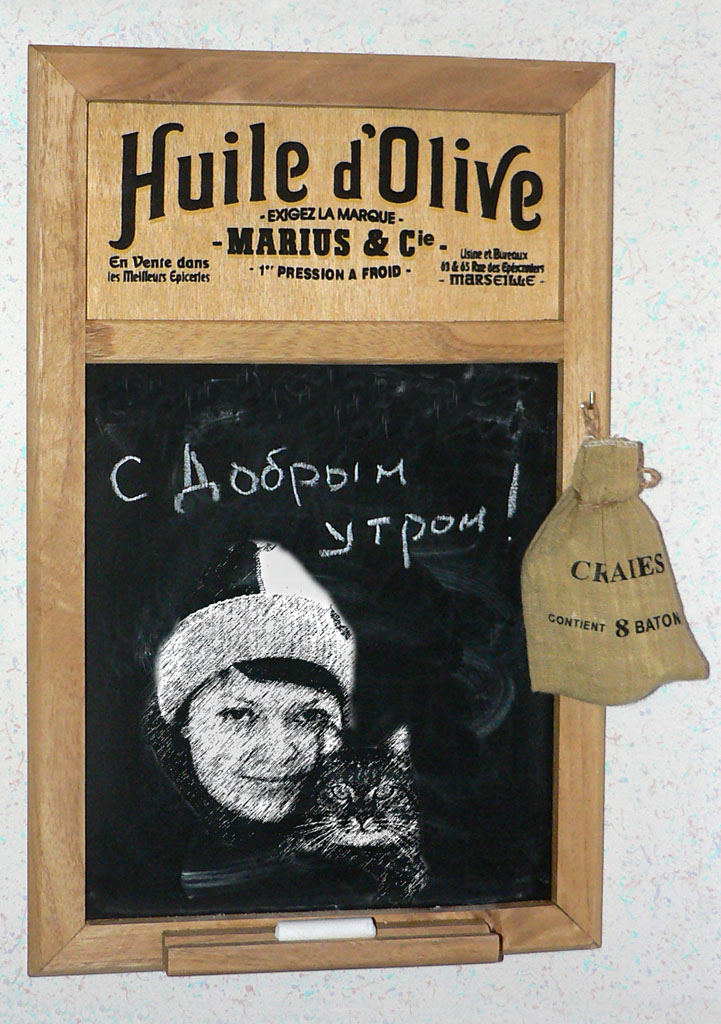 Huile d'Olive
- EXIGEZ LA MARQUE -
- MARIUS & Cie -
- 1re PRESSION A FROID -
En Vente dans
les Meilleurs Epiceries
Usine et Bureaux
63 & 65 Rue des
- MARSEILLE -
С Добрым
утром!
CRAIES
CONTIENT 8 BATON